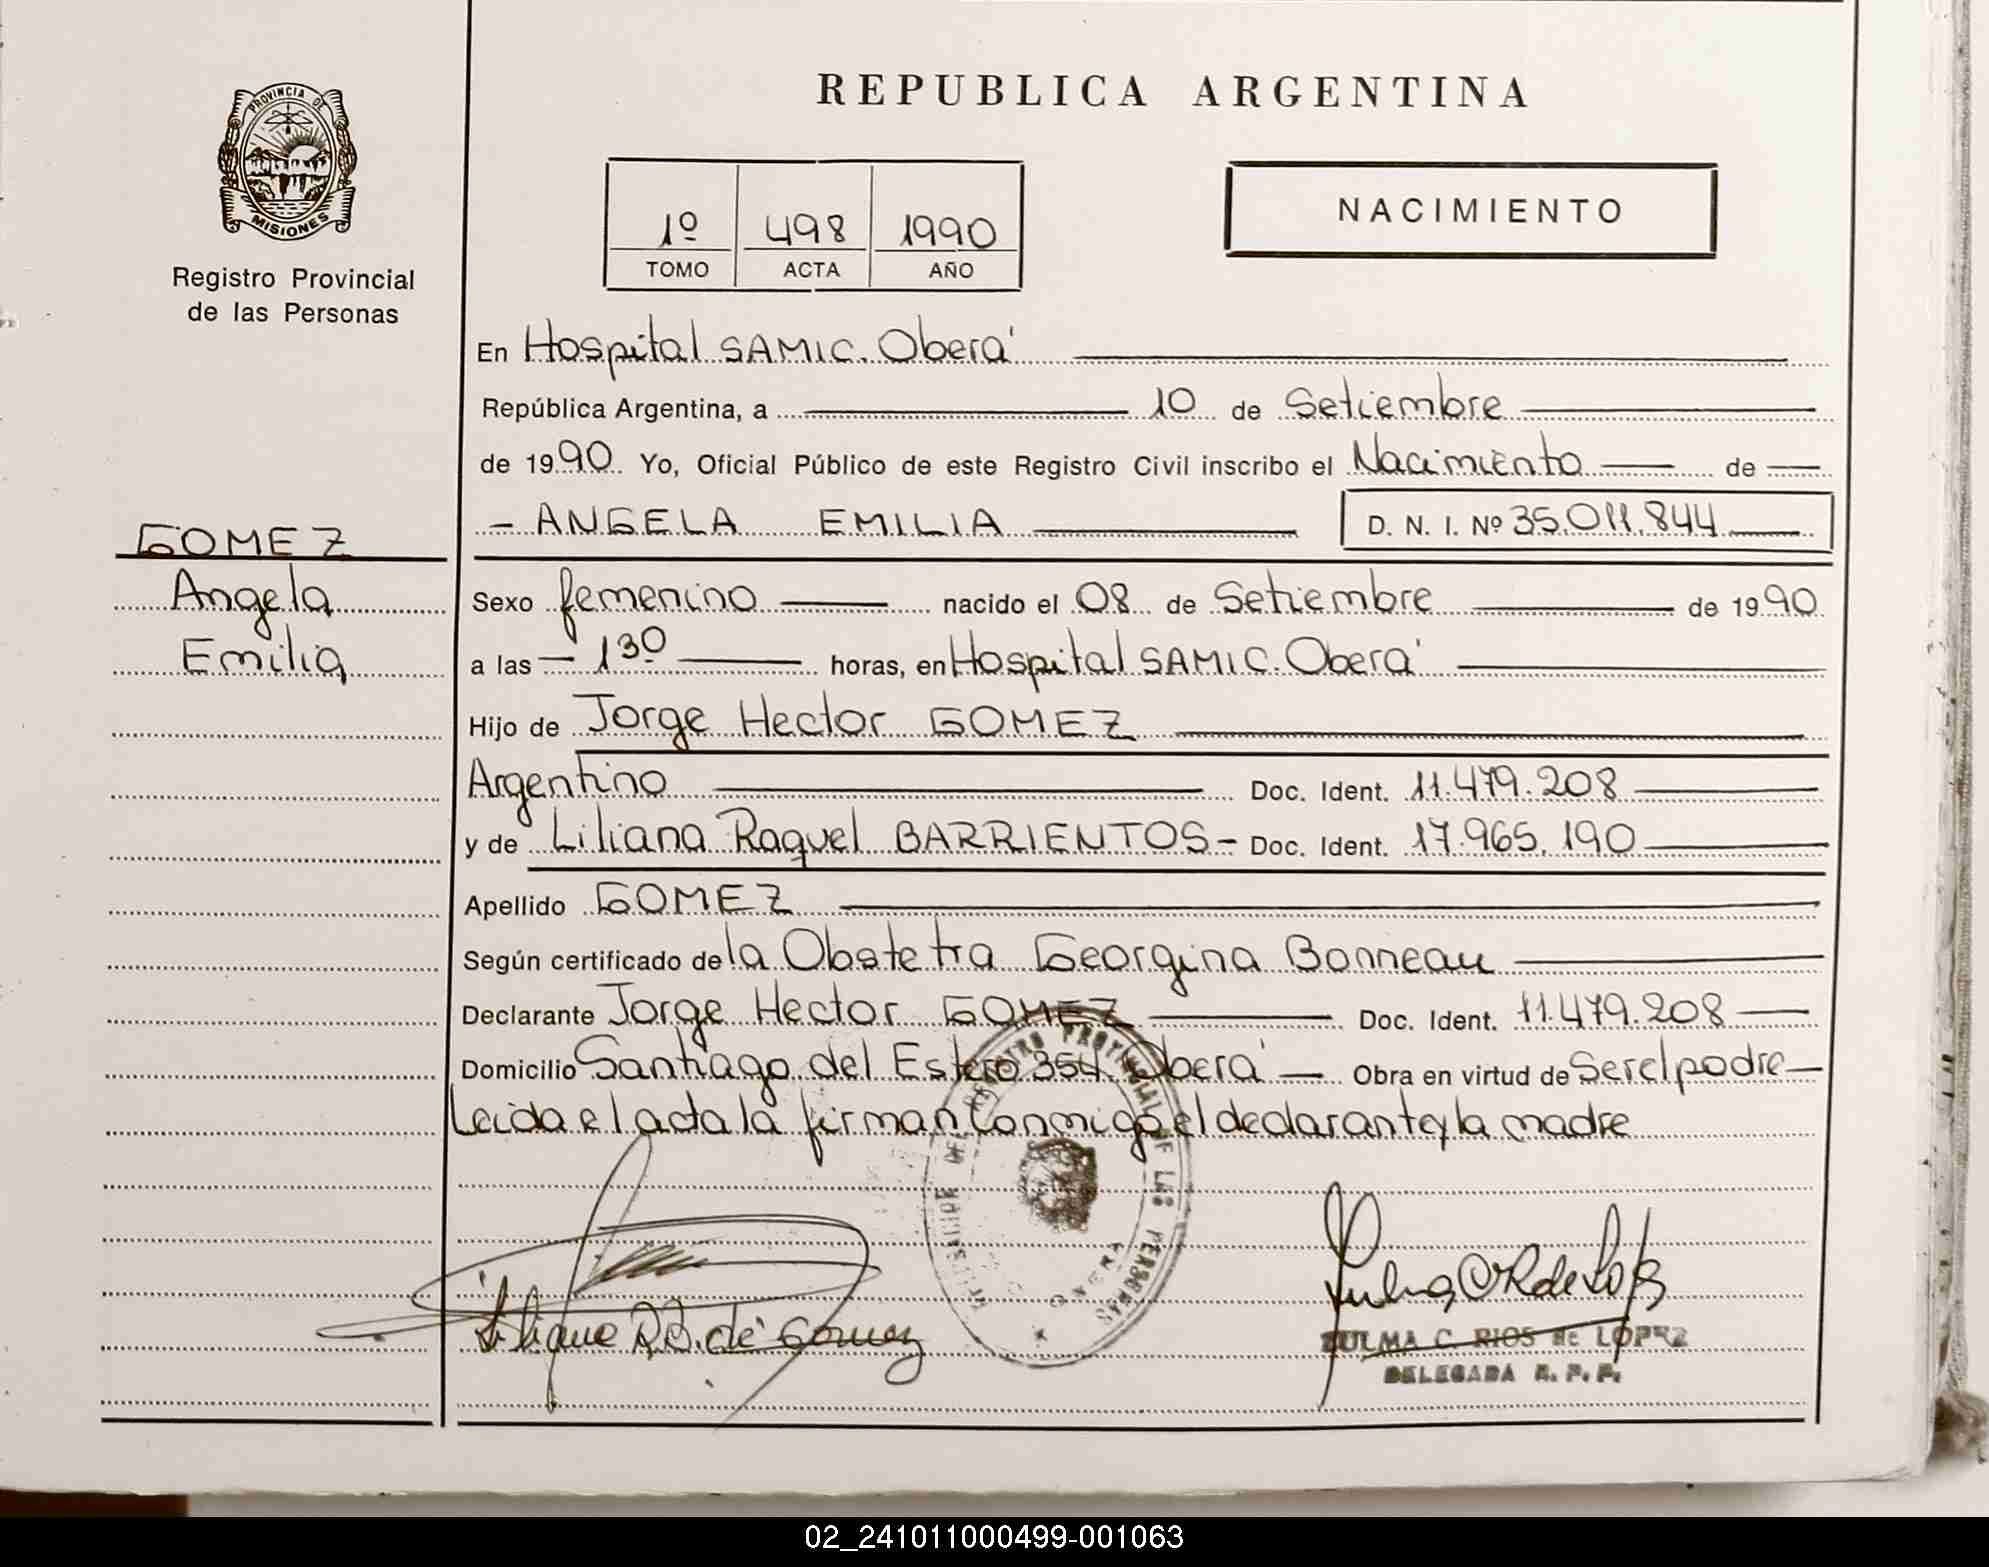 PROVINCIA DE
MISIONES
Registro Provincial
de las Personas
REPUBLICA ARGENTINA
1º 498 1990
TOMO ACTA AÑO
NACIMIENTO
En Hospital SAMIC. Oberá
República Argentina, a 10 de Setiembre
de 1990 Yo, Oficial Público de este Registro Civil inscribo el Nacimiento de
- ANGELA EMILIA D. N. I. Nº 35.011.844
GOMEZ
Angela
Emilia
Sexo femenino nacido el 08 de Setiembre de 1990
a las 130 horas, en Hospital SAMIC. Oberá
Hijo de Jorge Hector GOMEZ
Argentino Doc. Ident. 11.479.208
y de Liliana Raquel BARRIENTOS - Doc. Ident. 17.965.190
Apellido GOMEZ
Según certificado de la Obstetra Georgina Bonneau
Declarante Jorge Hector GOMEZ Doc. Ident. 11.479.208
Domicilio Santiago del Estero 354 Oberá Obra en virtud de Ser el padre
Leida el acta la firman conmigo el declarante y la madre
REGISTRO PROVINCIAL DE LAS PERSONAS
OBERA
Liliana R. B. de Gomez
ZULMA C. RIOS de LOPEZ
DELEGADA R. P. P.
02_241011000499-001063